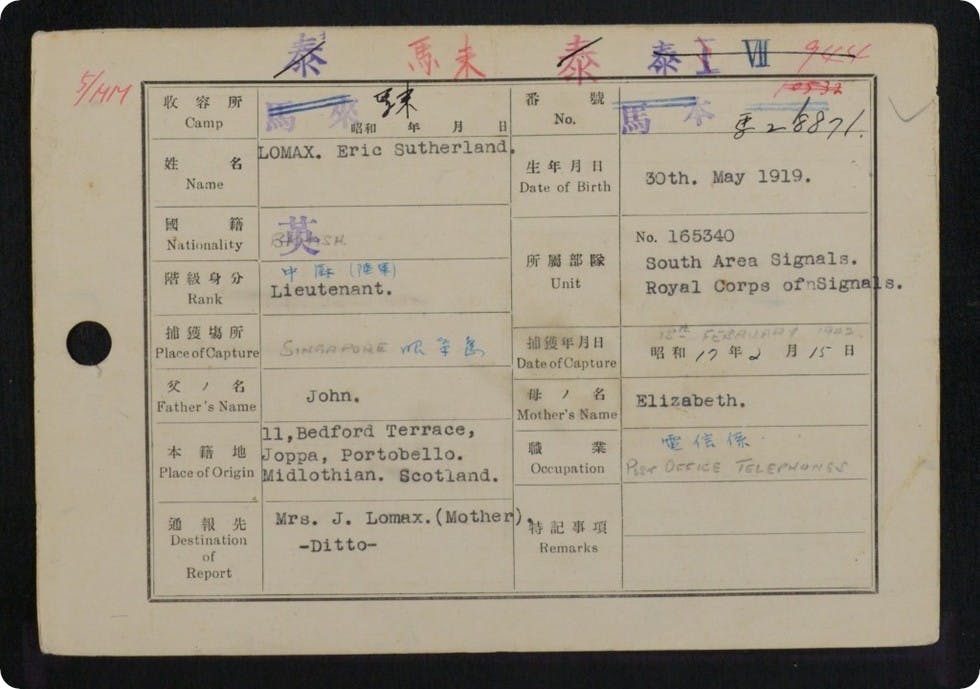 泰 馬来 泰 泰 I VII 944
5/MM
10532
收容所
Camp
馬来
昭和 年 月 日
番號
No.
馬本
馬 2 8871.
姓名
Name
LOMAX. Eric Sutherland.
生年月日
Date of Birth
30th. May 1919.
國籍
Nationality
英
BRITISH
所屬部隊
Unit
No. 165340
South Area Signals.
Royal Corps ofnSignals.
階級身分
Rank
中尉 (陸軍)
Lieutenant.
捕獲場所
Place of Capture
SINGAPORE 昭南島
捕獲年月日
Date of Capture
15TH FEBRUARY 1942
昭和 17 年 2 月 15 日
父ノ名
Father's Name
John.
母ノ名
Mother's Name
Elizabeth.
本籍地
Place of Origin
11,Bedford Terrace,
Joppa, Portobello.
Midlothian. Scotland.
職業
Occupation
電信係
POST OFFICE TELEPHONES
通報先
Destination
of
Report
Mrs. J. Lomax.(Mother).
-Ditto-
特記事項
Remarks